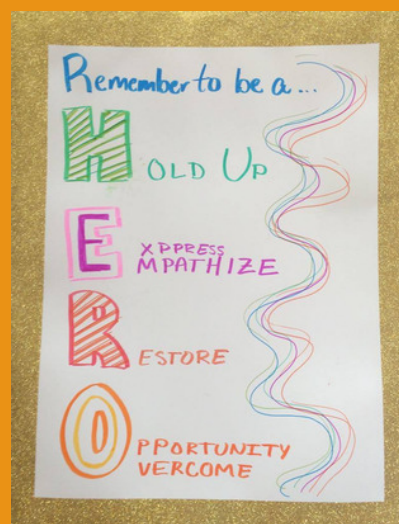 Remember to be a...
HOLD UP
EXPPRESS
MPATHIZE
RESTORE
OPPORTUNITY
VERCOME